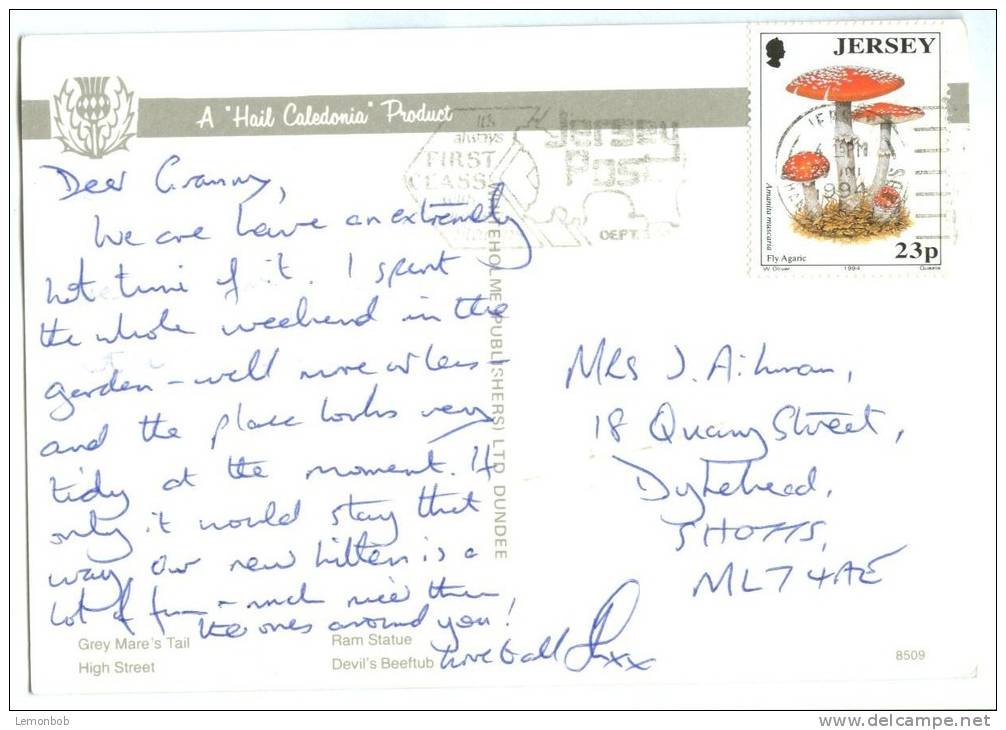 JERSEY
A "Hail Caledonia" Product
it's
always
FIRST
CLASS
Jersey
Post
DEPT.
JERSEY
1994
Amanita muscaria
Fly Agaric
23p
W. Oliver 1994 Questa
Dear Granny,
We are have an extremely
hot time of it. I spent
the whole weekend in the
garden - well more or less -
and the place looks very
tidy at the moment. If
only it would stay that
way. Our new kitten is a
lot of fun - much nicer than
the ones around you!
Love to all
xx
HOLMES (PUBLISHERS) LTD. DUNDEE
Mrs J. Aitman,
18 Quarry Street,
Dykehead,
SHOTTS,
ML7 4AE
Grey Mare's Tail
High Street
Ram Statue
Devil's Beeftub
8509
Lemonbob
www.delcampe.net